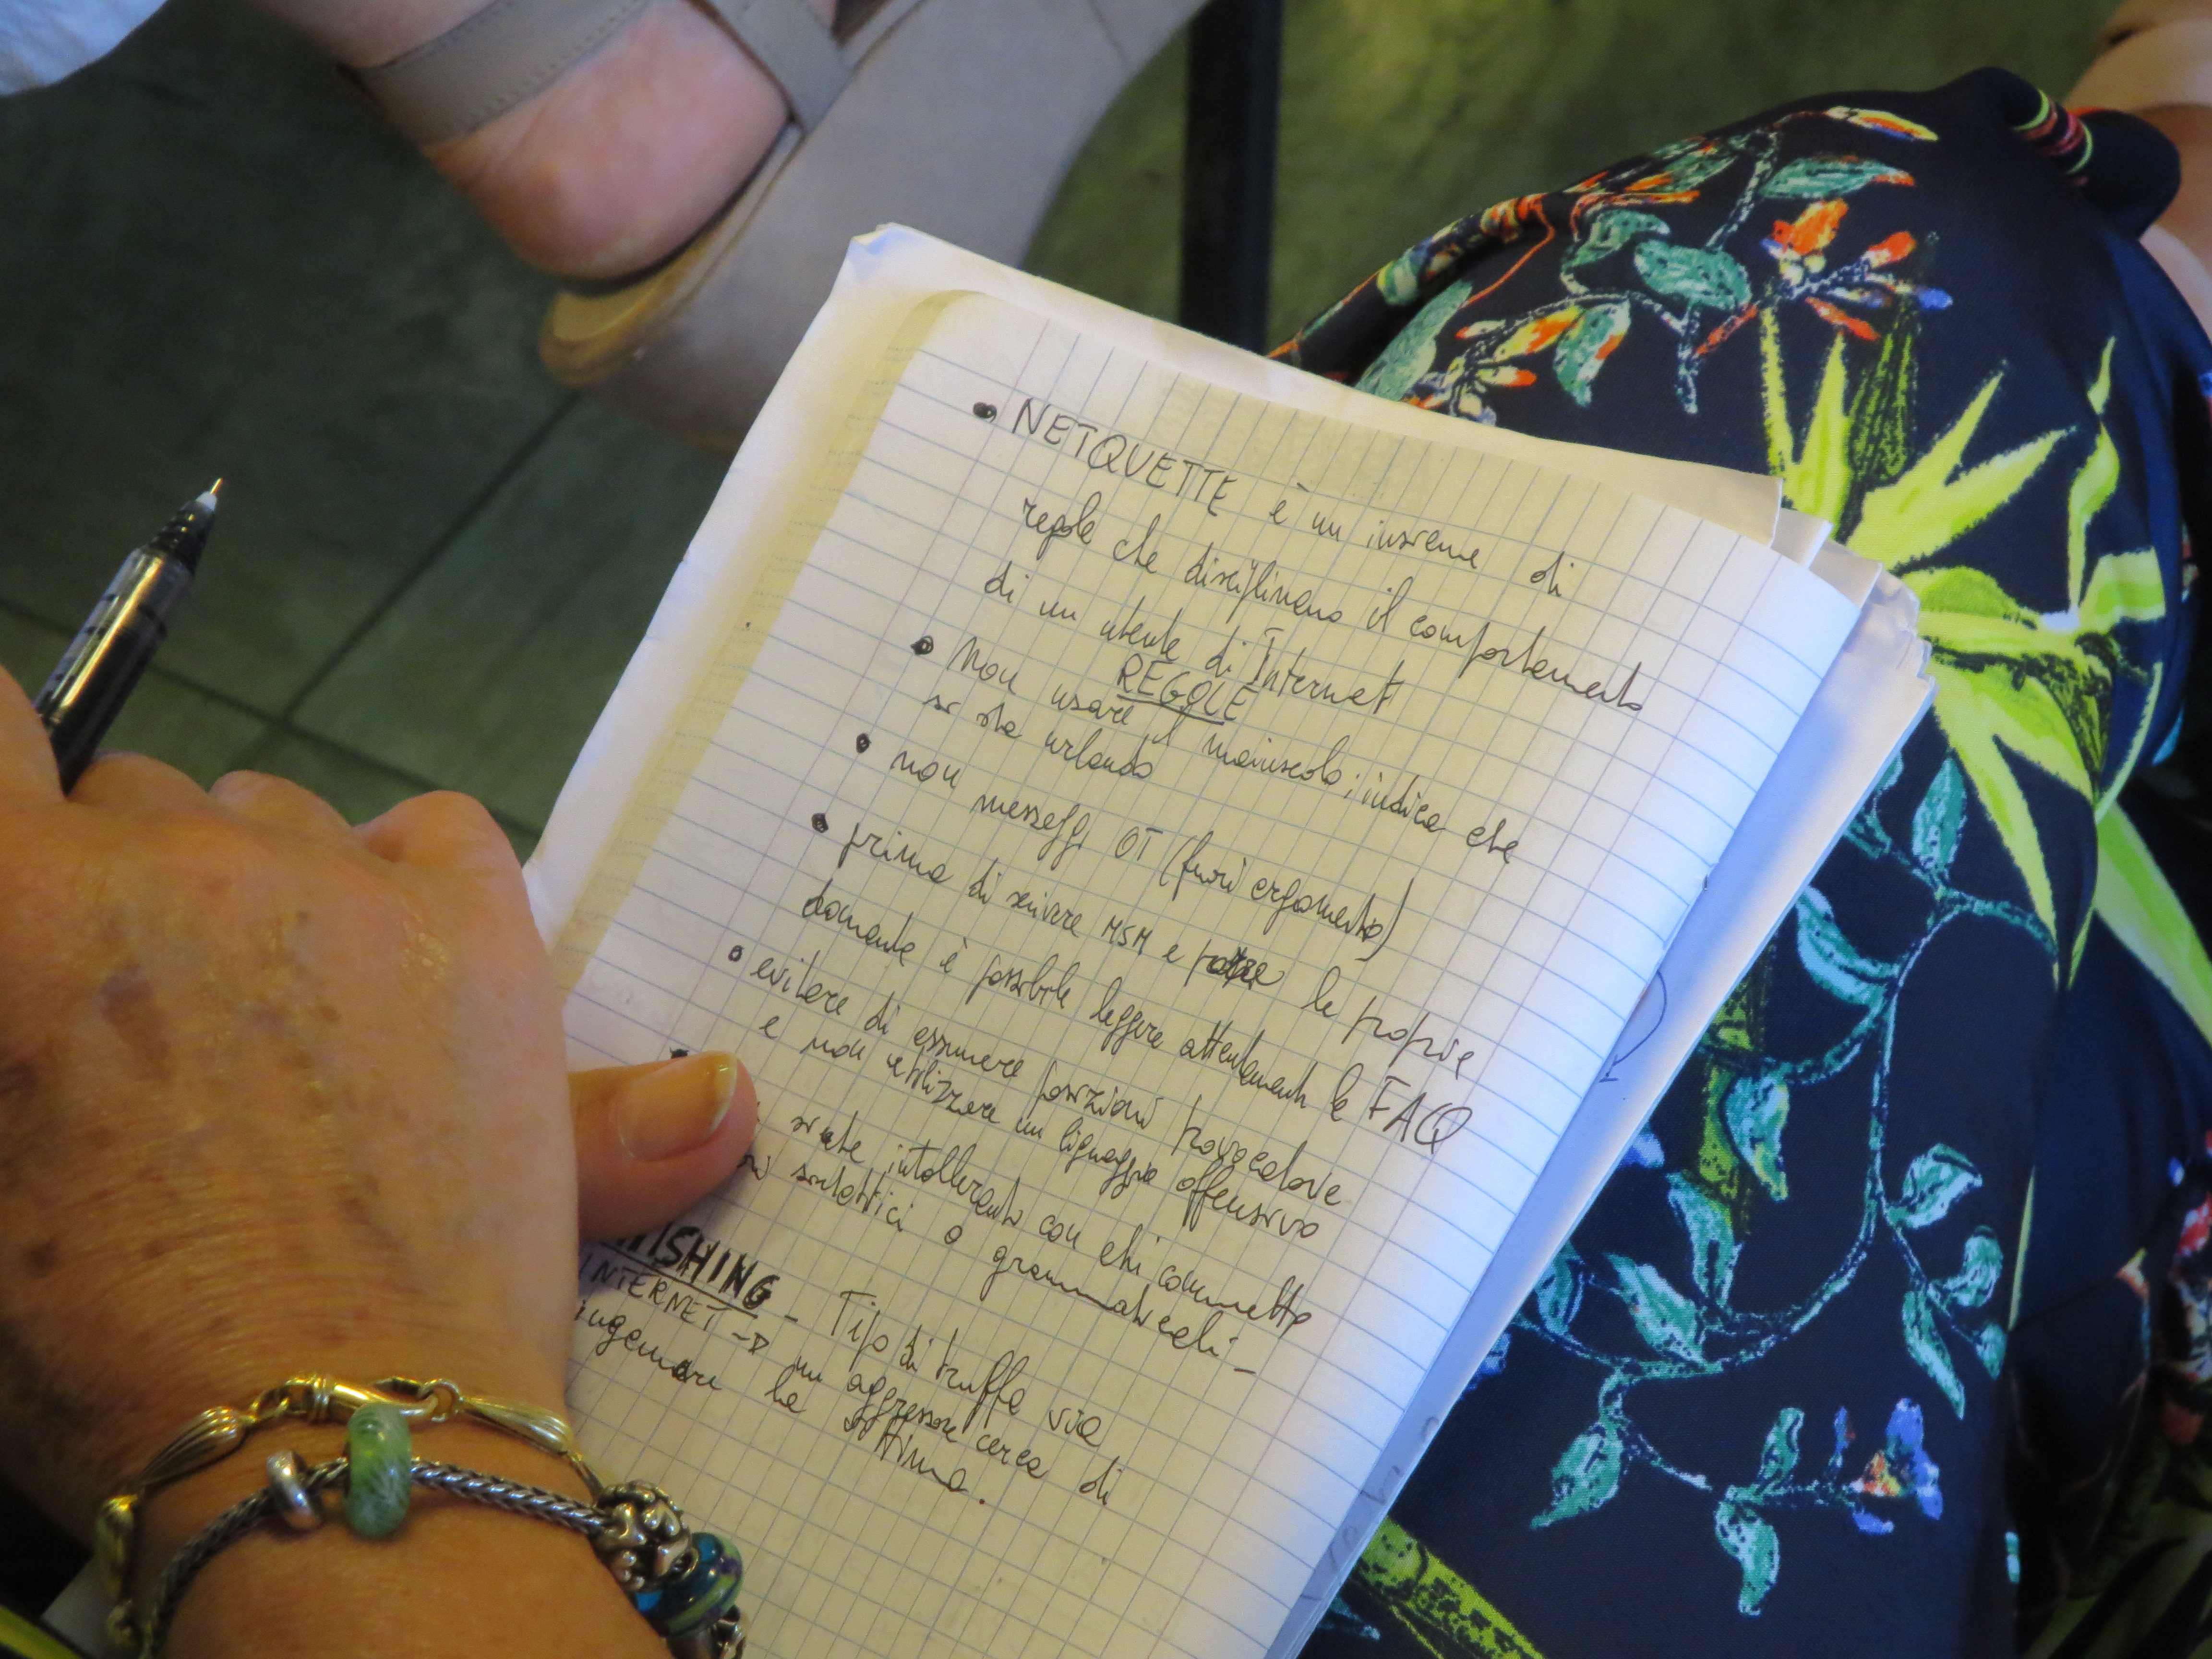 • NETQUETTE è un insieme di
regole che disciplinano il comportamento
di un utente di Internet
REGOLE
• Non usare il maiuscolo; indica che
si sta urlando
• non messaggi OT (fuori argomento)
• prima di scrivere MSM e porre le proprie
domande è possibile leggere attentamente le FAQ
• evitare di assumere posizioni provocatorie
e non utilizzare un liguaggio offensivo
siate intolleranti con chi commette
sintattici o grammaticali -
HISHING - Tipo di truffa via
INTERNET -> un aggressore cerca di
ingannare la vittima.